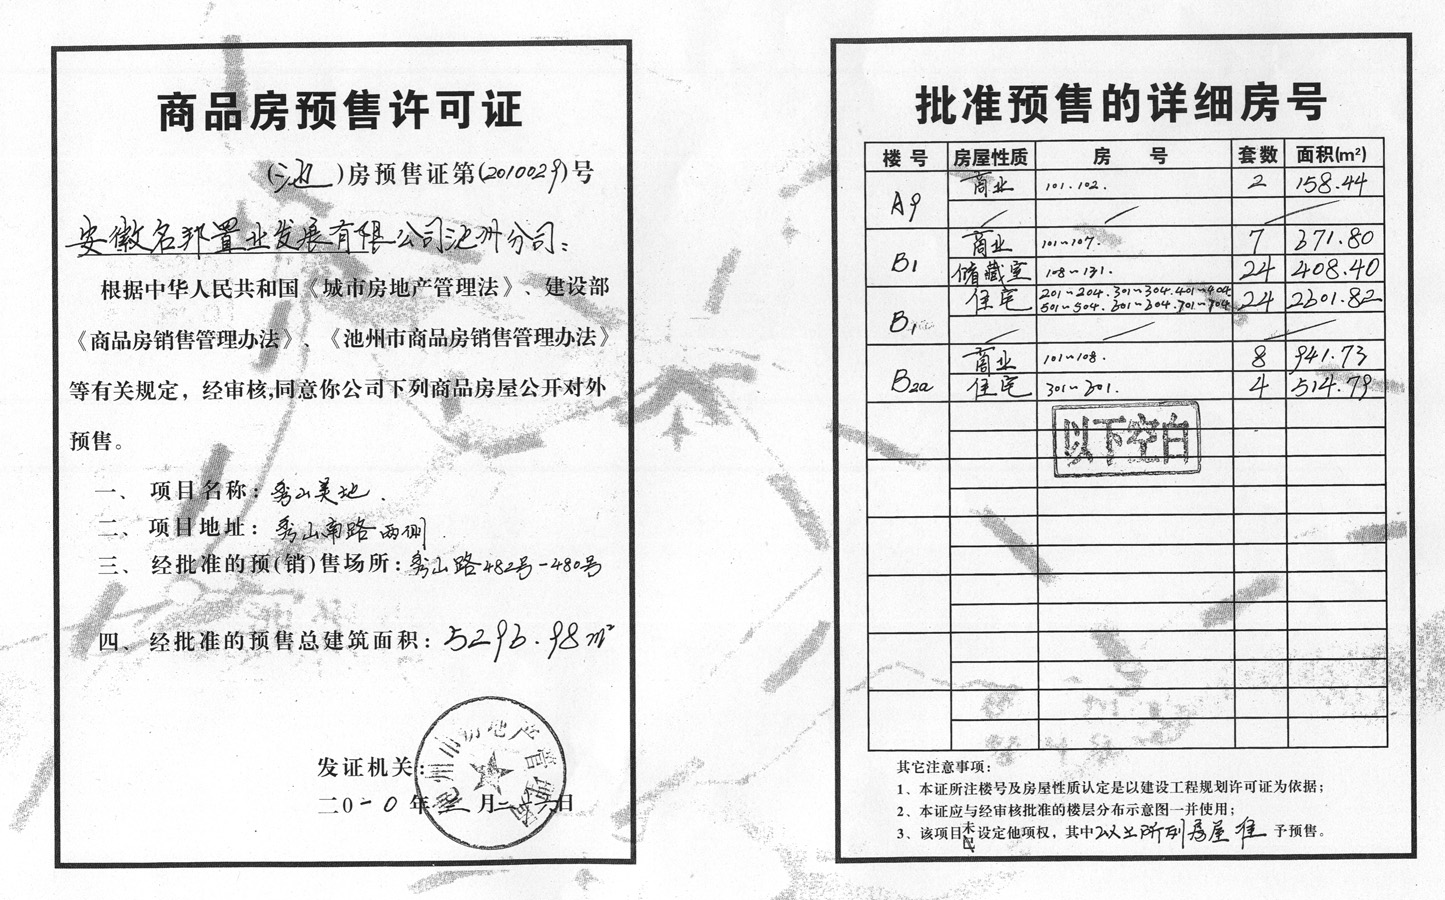 商品房预售许可证
(池)房预售证第(2010029)号
安徽名邦置业发展有限公司池州分司:
根据中华人民共和国《城市房地产管理法》、建设部
《商品房销售管理办法》、《池州市商品房销售管理办法》
等有关规定，经审核,同意你公司下列商品房屋公开对外
预售。
一、项目名称：秀山美地.
二、项目地址：秀山南路两侧
三、经批准的预(销)售场所：秀山路482号-480号
四、经批准的预售总建筑面积：5296.98m²
池州市房地产管理局
发证机关：
二0一0年三月二十六日
批准预售的详细房号
楼号 房屋性质 房号 套数 面积(m²)
A9 商业 101.102. 2 158.44
B1 商业 101~107. 7 671.80
储藏室 108~131. 24 408.40
B1 住宅 201~204.301~304.401~404 24 2601.82
501~504.601~604.701~704
B2a 商业 101~108. 8 941.73
住宅 301~601. 4 514.79
以下空白
其它注意事项：
1、本证所注楼号及房屋性质认定是以建设工程规划许可证为依据；
2、本证应与经审核批准的楼层分布示意图一并使用；
3、该项目未设定他项权，其中以上所列房屋准予预售。